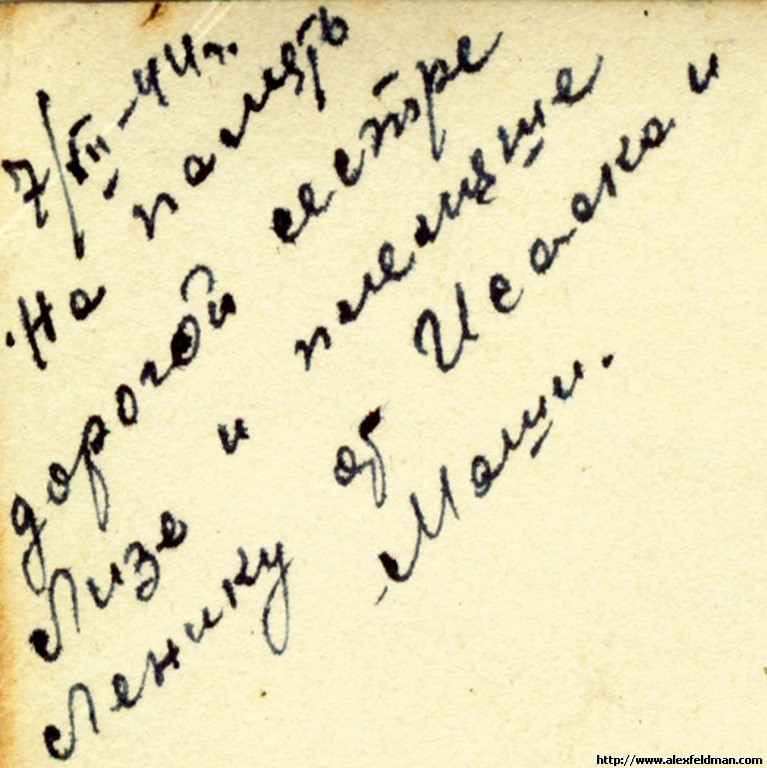 7/XII-44г.
На память
дорогой сестре
Лизе и племяше
Ленику от Исаака и
Маши.
http://www.alexfeldman.com